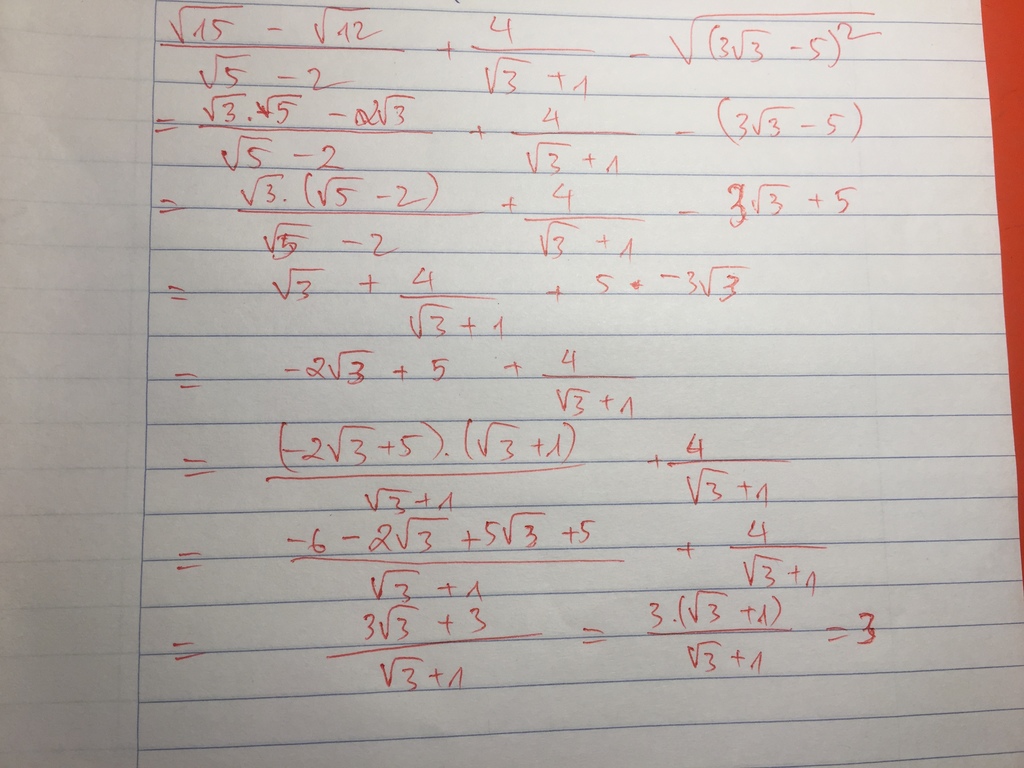 (√15 - √12)/(√5 - 2) + 4/(√3 + 1) - √((3√3 - 5)²)
= (√3.√5 - 2√3)/(√5 - 2) + 4/(√3 + 1) - (3√3 - 5)
= (√3.(√5 - 2))/(√5 - 2) + 4/(√3 + 1) - 3√3 + 5
= √3 + 4/(√3 + 1) + 5 - 3√3
= -2√3 + 5 + 4/(√3 + 1)
= ((-2√3 + 5).(√3 + 1))/(√3 + 1) + 4/(√3 + 1)
= (-6 - 2√3 + 5√3 + 5)/(√3 + 1) + 4/(√3 + 1)
= (3√3 + 3)/(√3 + 1) = (3.(√3 + 1))/(√3 + 1) = 3